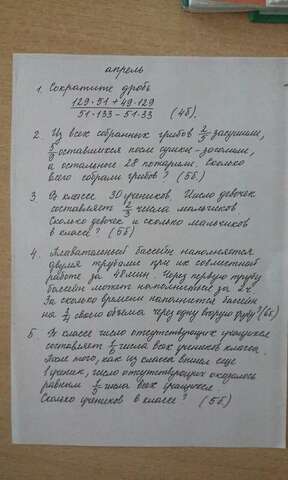 апрель
1. Сократите дробь
129·51 + 49·129
51·133 – 51·33 (4б).
2. Из всех собранных грибов 2/5 засушили,
5/9 оставшихся после сушки – засолили,
а остальные 28 пожарили. Сколько
всего собрали грибов? (5б)
3 В классе 30 учеников. Число девочек
составляет 2/3 числа мальчиков
Сколько девочек и сколько мальчиков
в классе? (5б)
4. Плавательный бассейн наполняется
двумя трубами при их совместной
работе за 48мин. Через первую трубу
бассейн может наполниться за 2ч.
За сколько времени наполнится бассейн
на своего объёма через одну вторую трубу? (6б)
5. В классе число отсутствующих учащихся
составляет числа всех учеников класса.
После того, как из класса вышел еще
1 ученик, число отсутствующих оказалось
равным числа всех учащихся
Сколько учеников в классе? (5б)